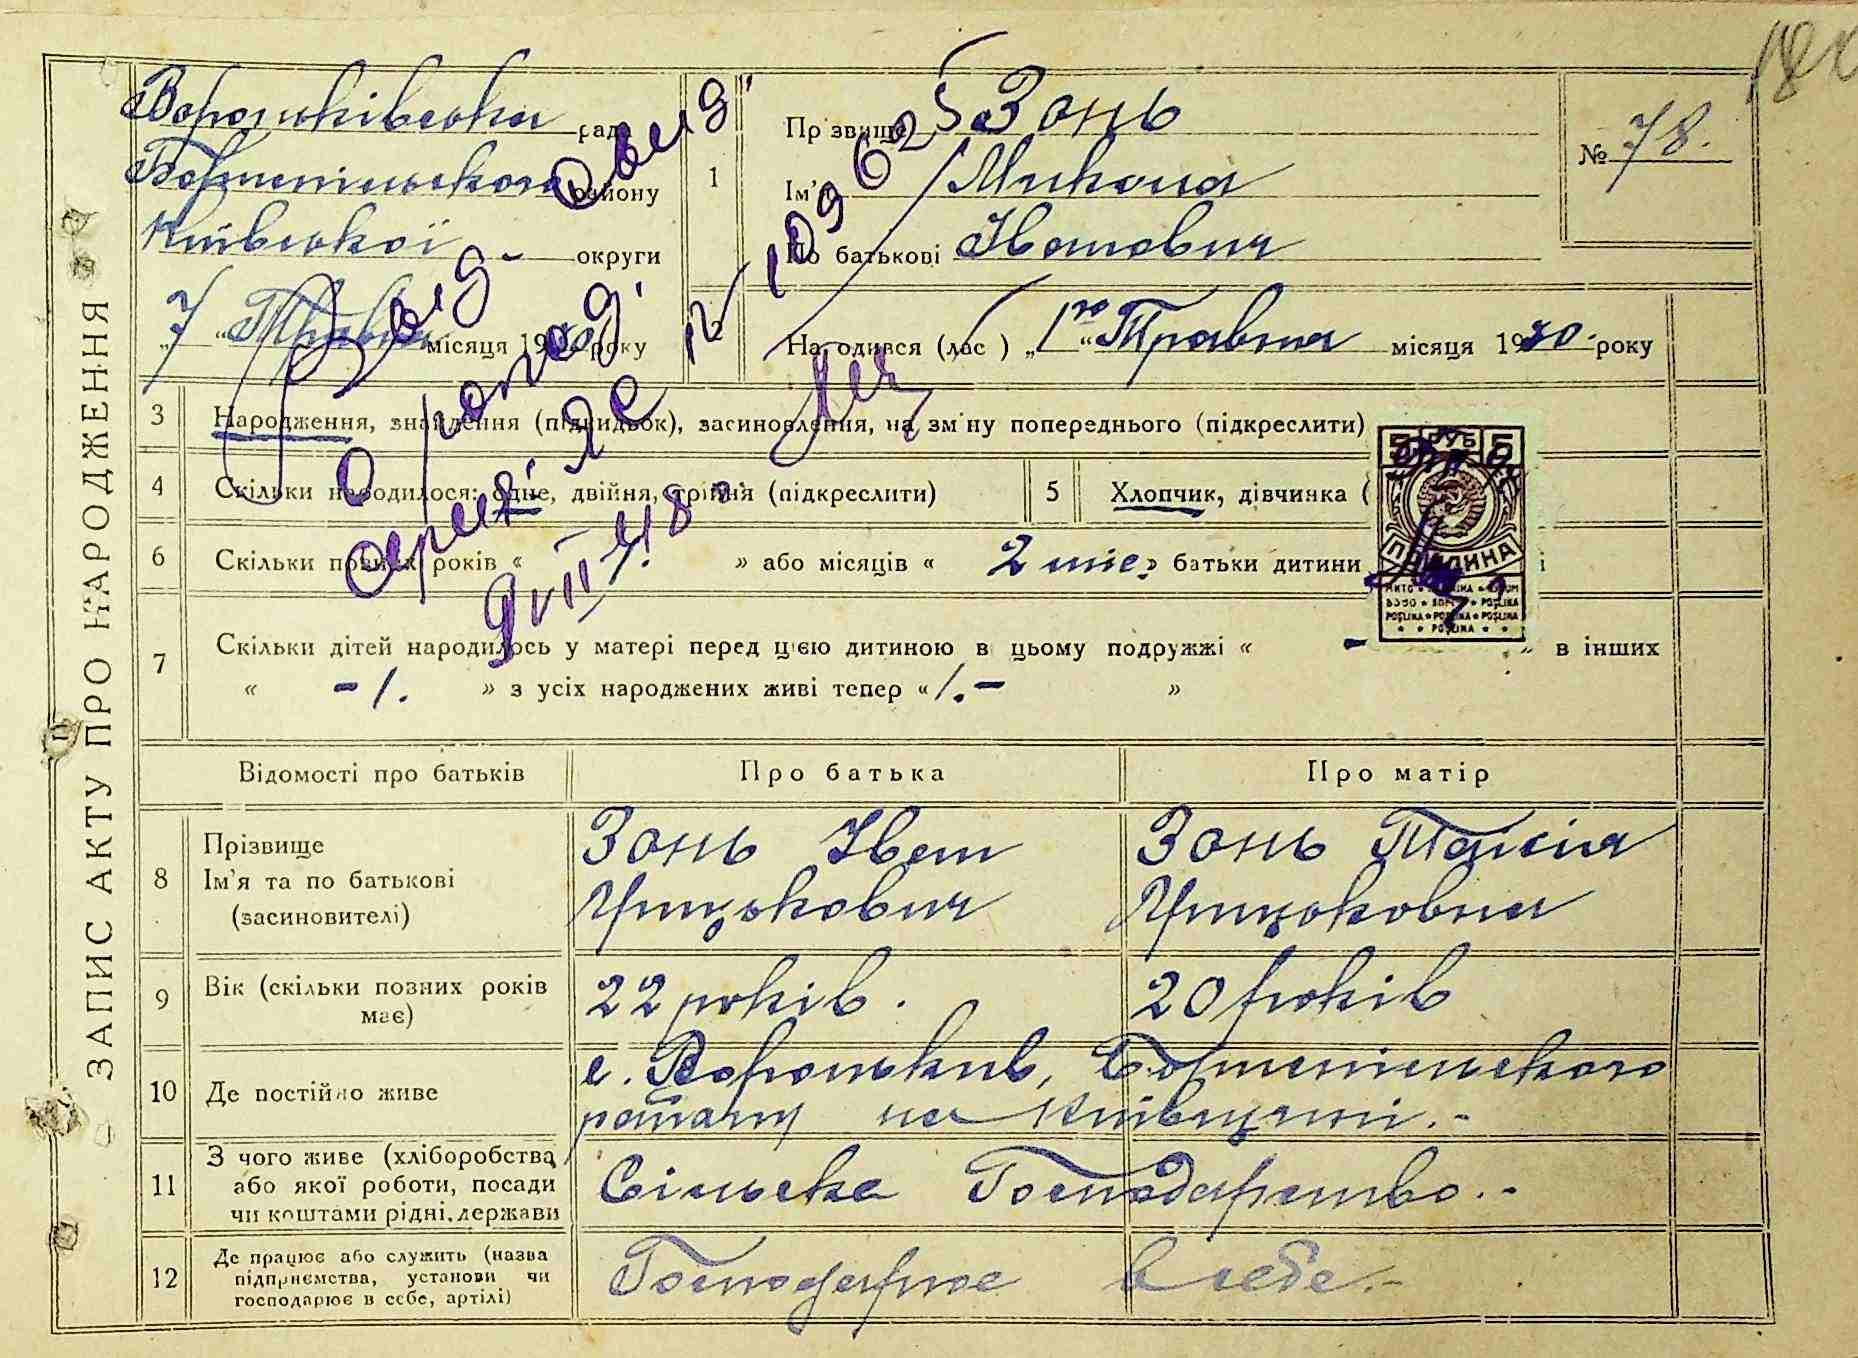 Вороньківська рада
Бориспільського району
Київської округи
„7“ Травня місяця 1930 року
1
Прізвище Зонь
Ім'я Микола
По батькові Іванович
№ 78.
2
Народився (лас ) „1го“ Травня місяця 1930 року
ЗАПИС АКТУ ПРО НАРОДЖЕННЯ
3 Народження, знайдення (підкидьок), засиновлення, на зміну попереднього (підкреслити)
4 Скільки народилося: одне, двійня, трійня (підкреслити)
5 Хлопчик, дівчинка (
6 Скільки повних років « » або місяців « 2 міс. » батьки дитини
7 Скільки дітей народилось у матері перед цією дитиною в цьому подружжі « - » в інших
« - 1. » з усіх народжених живі тепер « 1. - »
5 РУБ 5
ПОШЛИНА
Відомості про батьків Про батька Про матір
8 Прізвище
Ім'я та по батькові
(засиновителі)
Зонь Іван
Грицькович
Зонь Таісія
Грицьковна
9 Вік (скільки повних років
має)
22 років. 20 років
10 Де постійно живе
с. Вороньків, Бориспільського
району на Київщині. -
11 З чого живе (хліборобства,
або якої роботи, посади
чи коштами рідні, держави
Сільське Господарство. -
12 Де працює або служить (назва
підприємства, установи чи
господарює в себе, артілі)
Господарює в себе. -